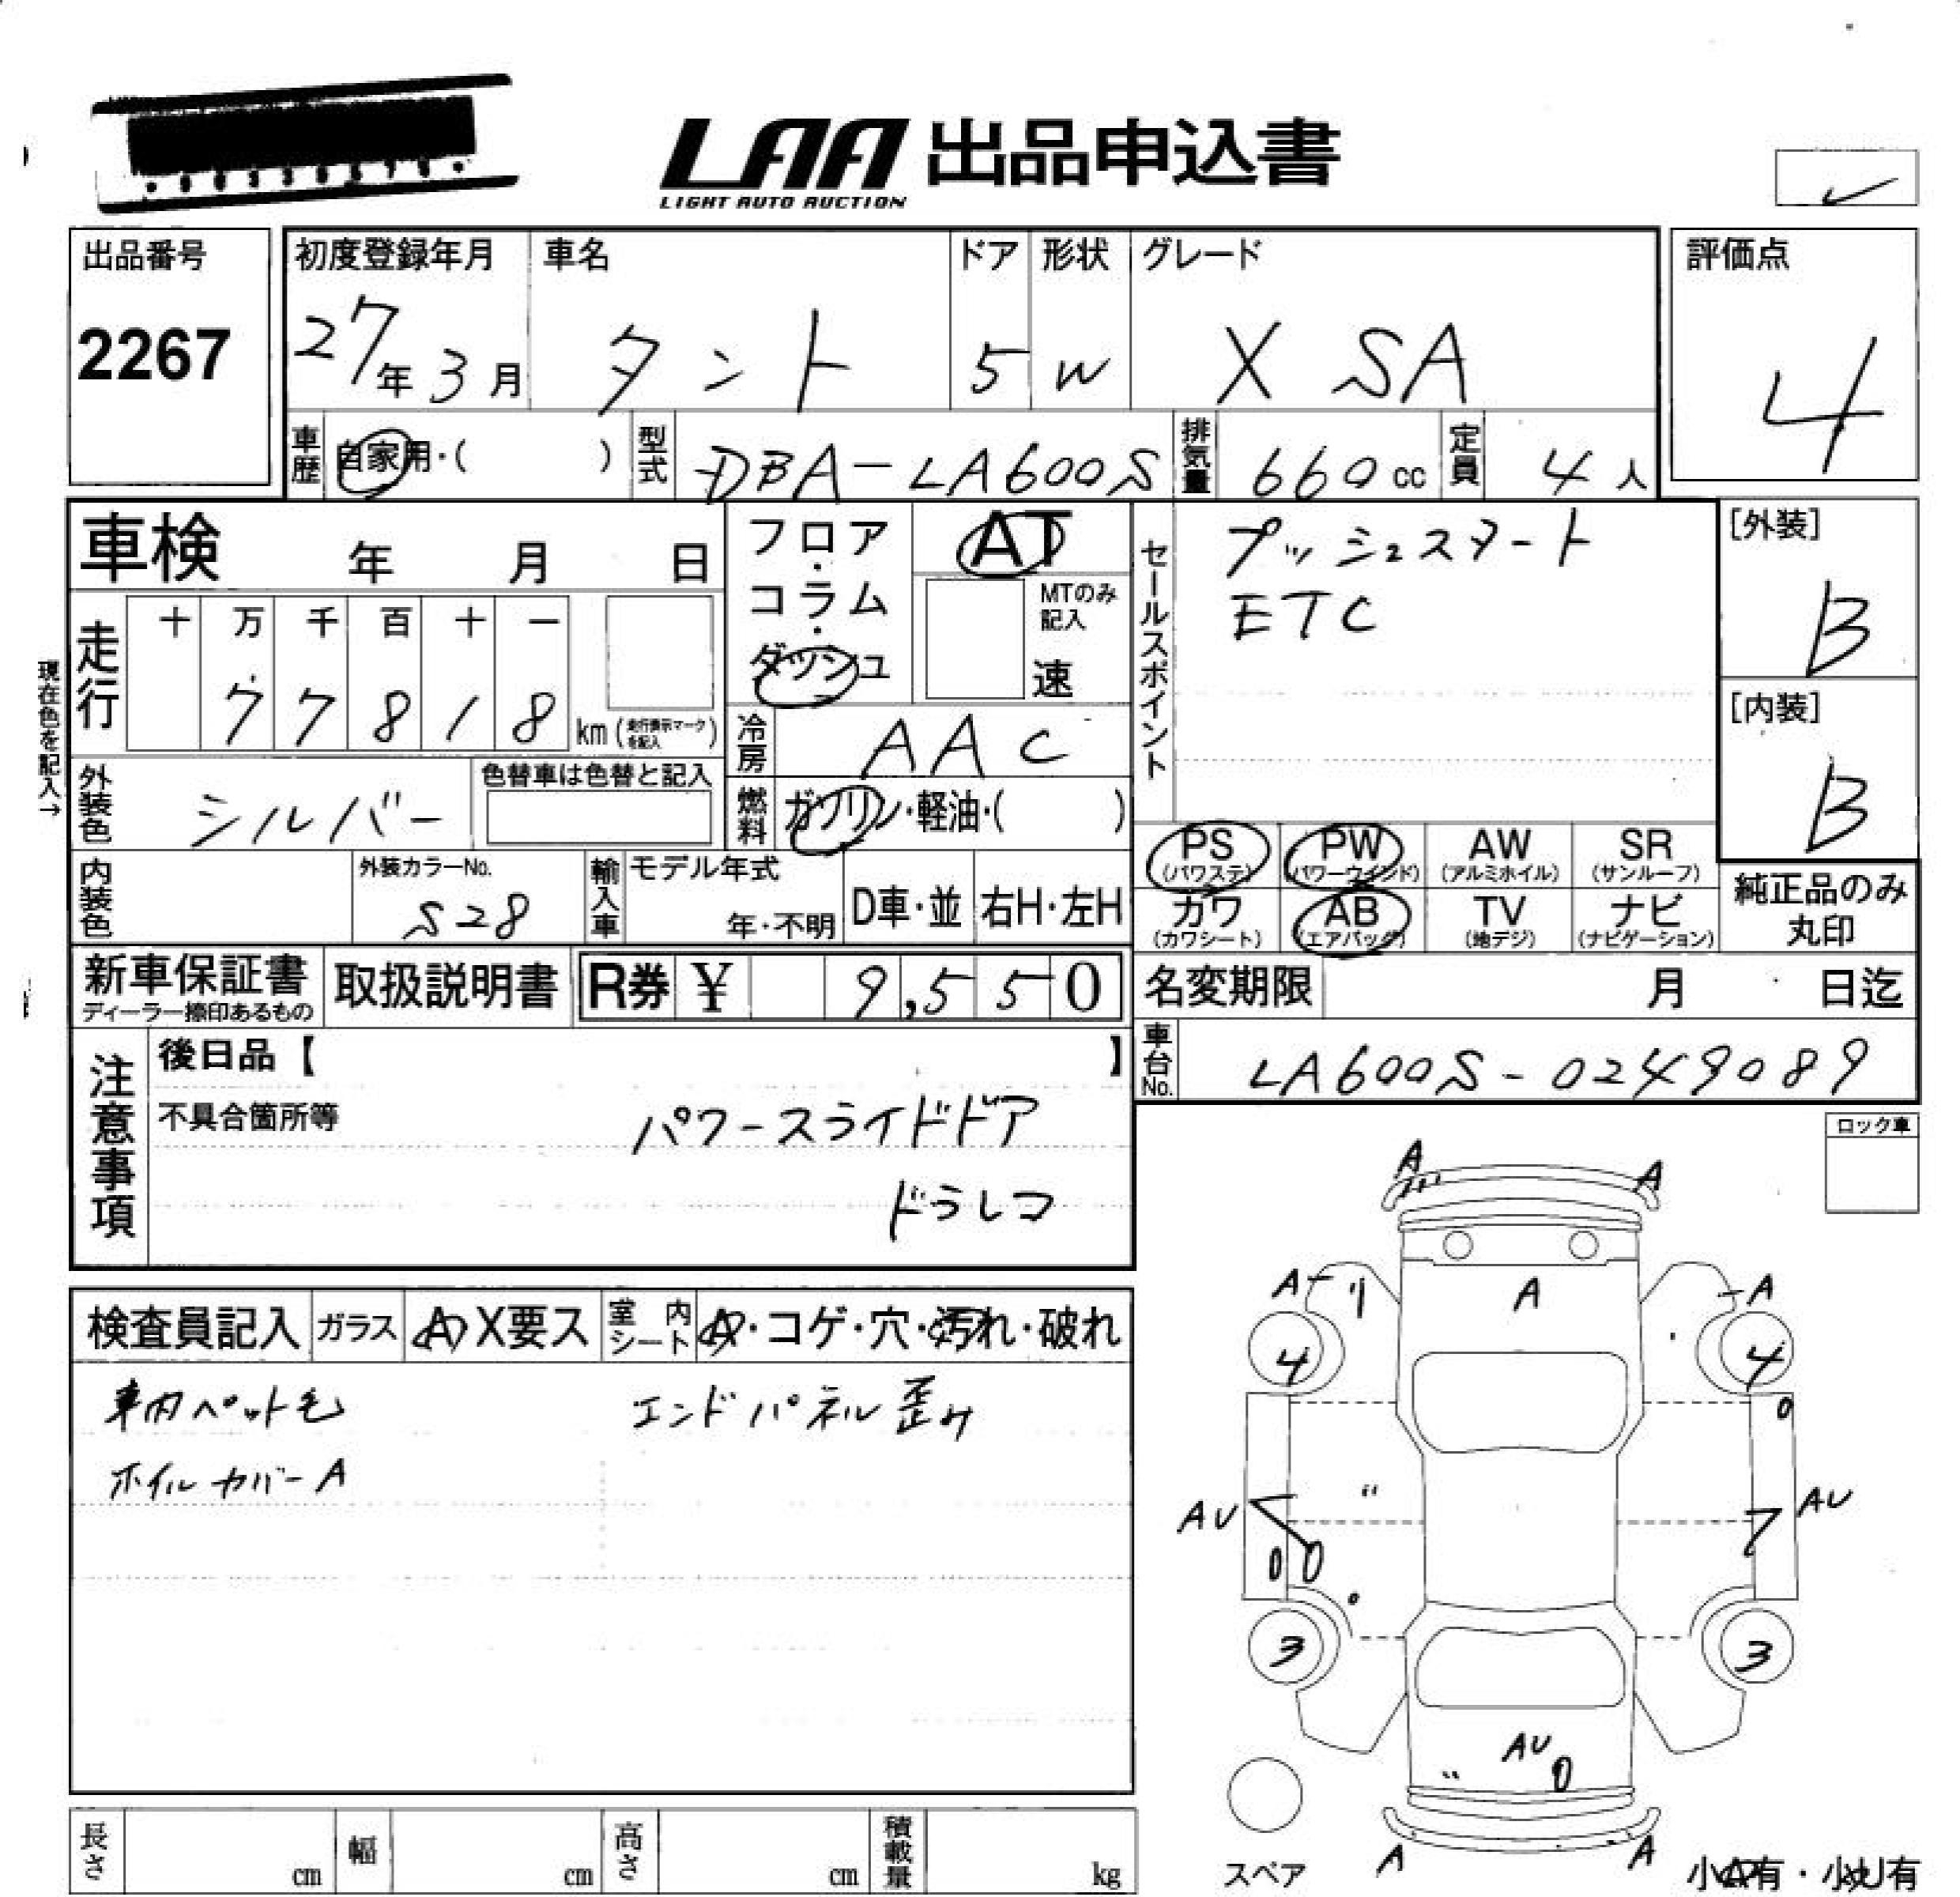 LAA 出品申込書
LIGHT AUTO AUCTION
出品番号
2267
初度登録年月
27年3月
車名
タント
ドア
5
形状
W
グレード
X SA
評価点
4
車歴
自家用・( )
型式
DBA-LA600S
排気量
660cc
定員
4人
車検 年 月 日
フロア・コラム・ダッシュ
AT
MTのみ記入
速
セールスポイント
プッシュスタート
ETC
[外装]
B
[内装]
B
現在色を記入→
走行
十 万 千 百 十 一
7 7 8 1 8 km (走行表示マークを記入)
冷房
AAC
外装色
シルバー
色替車は色替と記入
燃料
ガソリン・軽油・( )
PS (パワステ)
PW (パワーウインド)
AW (アルミホイル)
SR (サンルーフ)
カワ (カワシート)
AB (エアバッグ)
TV (地デジ)
ナビ (ナビゲーション)
純正品のみ丸印
内装色
外装カラーNo.
S28
輸入車
モデル年式
年・不明
D車・並
右H・左H
新車保証書
ディーラー捺印あるもの
取扱説明書
R券 ¥ 9,550
名変期限 月 日迄
車台No.
LA600S-0249089
注意事項
後日品【 】
不具合箇所等
パワースライドドア
ドラレコ
ロック車
検査員記入
ガラス
A X要ス
室内シート
A・コゲ・穴・汚れ・破れ
車内ペット毛
エンドパネル歪み
ホイルカバーA
A
A
A
A
A
4
4
AU
AU
3
3
AU
A
A
スペア
小A有・小U有
長さ cm
幅 cm
高さ cm
積載量 kg